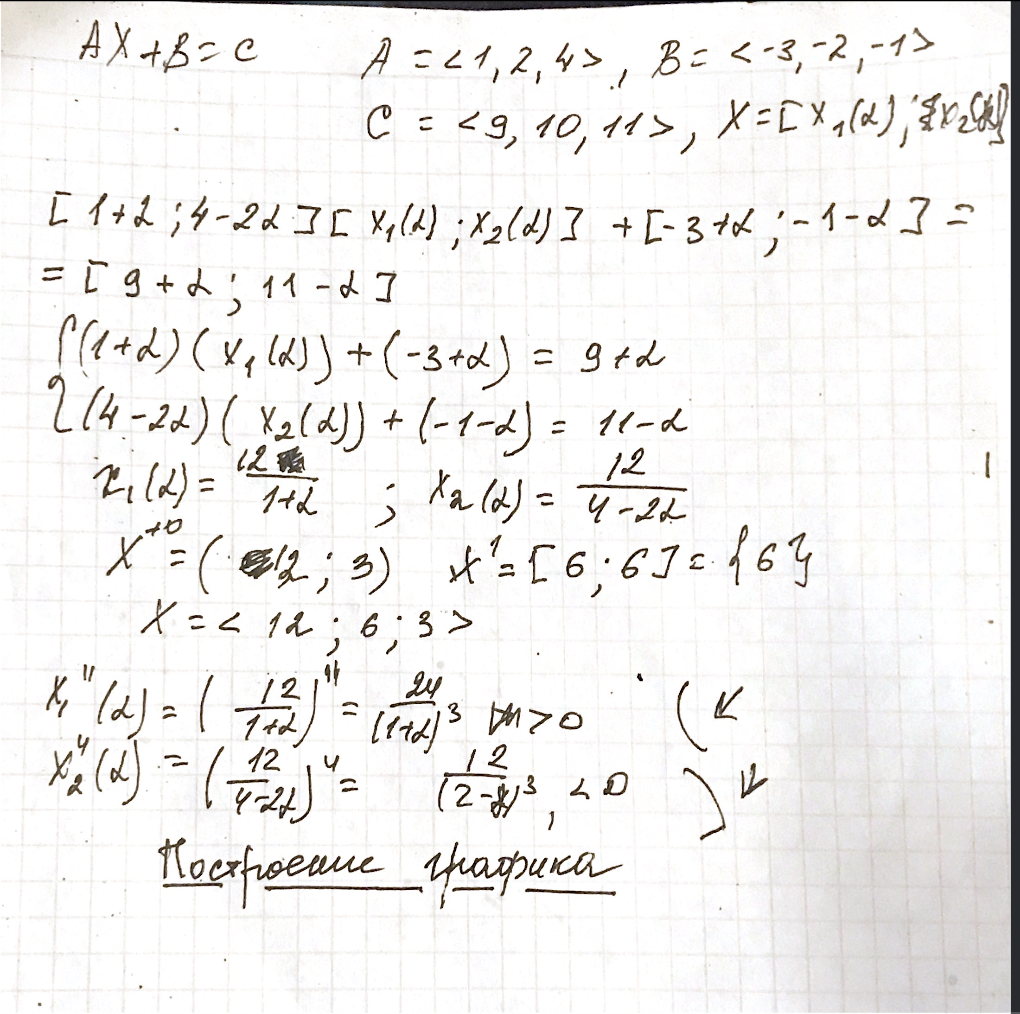 AX+B=C A=<1,2,4>, B=<-3,-2,-1>
C=<9,10,11>, X=[x₁(α);x₂(α)]
[1+α;4-2α][x₁(α);x₂(α)]+[-3+α;-1-α]=
=[9+α;11-α]
{(1+α)(x₁(α))+(-3+α)=9+α
(4-2α)(x₂(α))+(-1-α)=11-α
x₁(α)=12/(1+α); x₂(α)=12/(4-2α)
X⁺⁰=(12;3) x¹=[6;6]={6}
X=<12;6;3>
x₁''(α)=(12/(1+α))''=24/(1+α)³ >0 ( ↙
x₂''(α)=(12/(4-2α))''=12/(2-α)³, <0 ) ↙
Построение графика